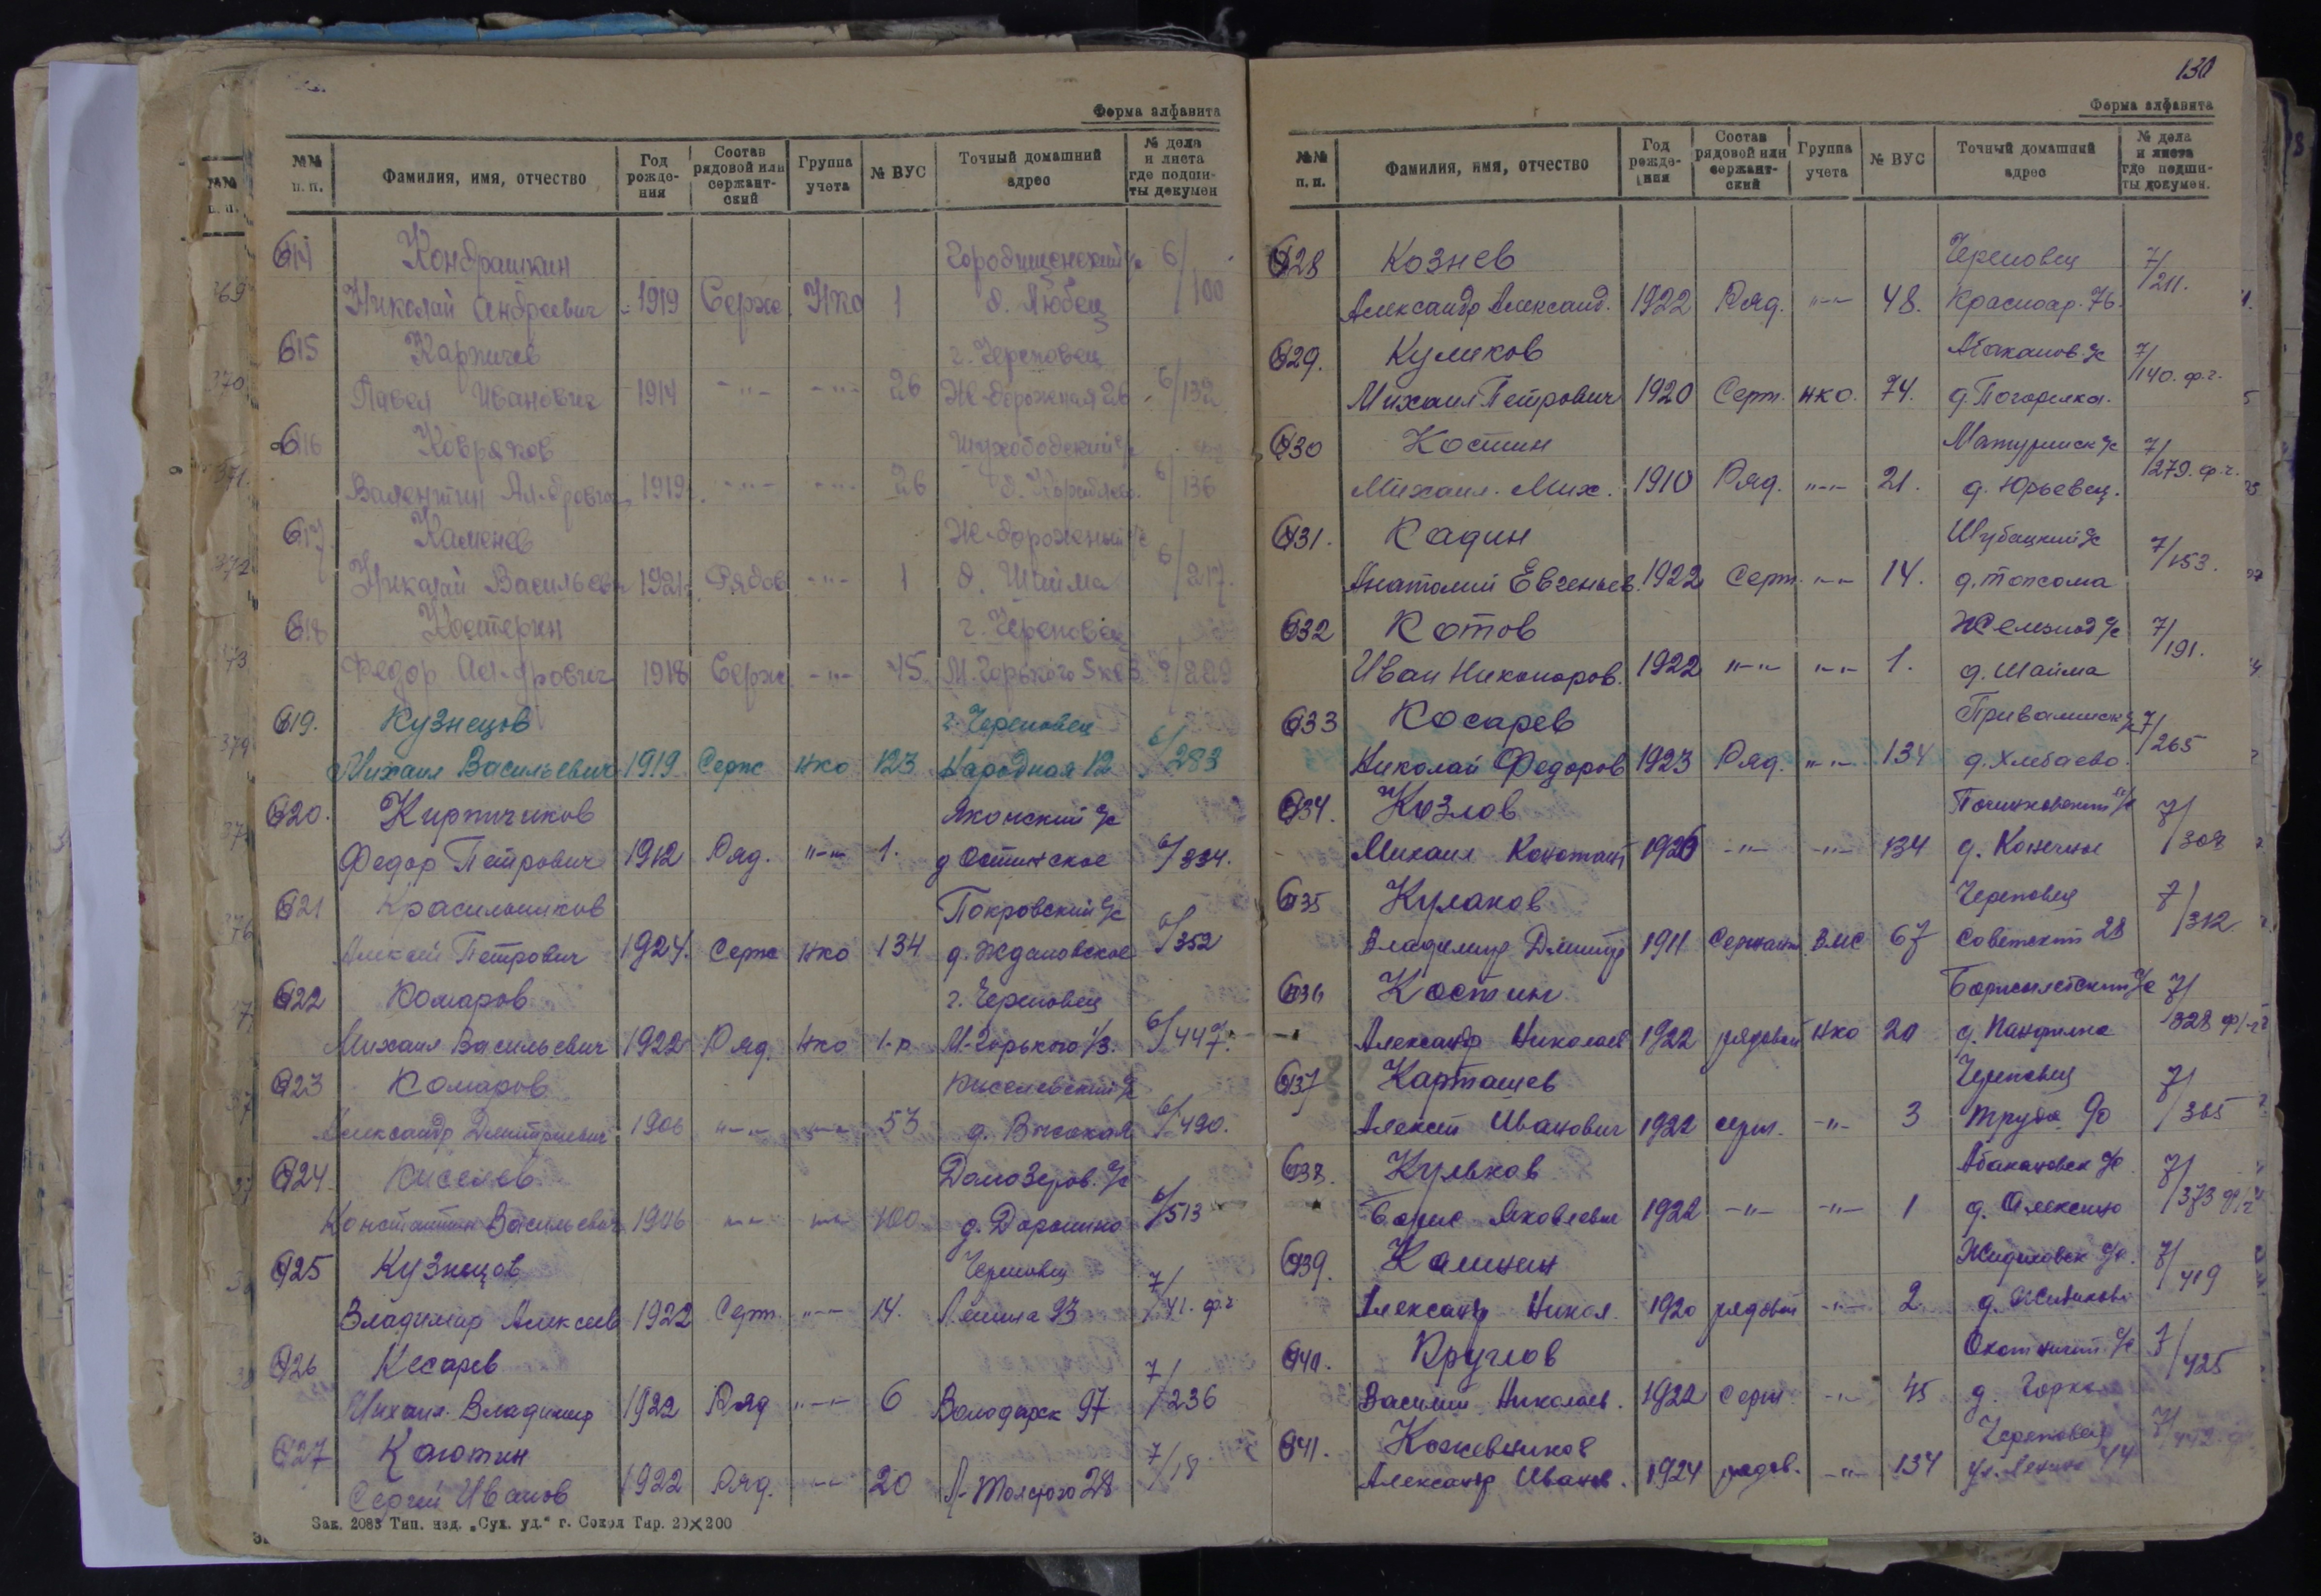 Форма алфавита
№№ п. п. Фамилия, имя, отчество Год рожде-ния Состав рядовой или сержант-ский Группа учета № ВУС Точный домашний адрес № дела и листа где подши-ты докумен
614 Кондрашкин Городищенский с/с 6/
Николай Андреевич 1919 Серж НКО 1 д. Любец 100
615 Карпичев г. Череповец
Павел Иванович 1914 -"- -"- 26 Ж-дорожная 26 6/132
616 Ковряков Шухободский с/с
Валентин Ал-дрович 1919 -"- -"- 26 6/136
617 Каменев Ж-дорожный с/с
Николай Васильев 1921 Рядов -"- 1 д. Шайма 6/217.
618 Костерин г. Череповец
Федор Ал-дрович 1918 Серж -"- 45 М. Горького 5 кв 3 6/229
619. Кузнецов г. Череповец
Михаил Васильевич 1919 Серж НКО 123 Народная 12 6/283
620. Кирпичиков Яконский с/с
Федор Петрович 1912 Ряд. "-" 1. д Остинское 6/334.
621 Красильников Покровский с/с
Алексей Петрович 1924. Серж НКО 134 д. Ждановское 6/352
622 Комаров г. Череповец
Михаил Васильевич 1922 Ряд НКО 1-р М-Горького 1/3. 6/447.
623 Комаров с/с
Александр Дмитриевич 1906 "-" "-" 53 д. Высокая 6/490.
624 Киселев Домозеров. с/с
Константин Васильевич 1906 "-" "-" 100 д. Дорошино 6/513
625 Кузнецов Череповец
Владимир Алексеев 1922 Серж. "-" 14. Ленина 93 7/41. ф.2
626 Косарев 7/
Михаил. Владимир 1922 Ряд "-" 6 Володарск 97 236
627 Каютин 7/
Сергей Иванов 1922 Ряд. "-" 20 Л-Толстого 28 18
Зак. 2083 Тип. изд. „Сух. уд.“ г. Сокол Тир. 20×200
130
Форма алфавита
№№ п. п. Фамилия, имя, отчество Год рожде-ния Состав рядовой или сержант-ский Группа учета № ВУС Точный домашний адрес № дела и листа где подши-ты докумен.
628 Кознев Череповец 7/
Александр Александ. 1922 Ряд. "-" 48. Красноар. 76. 211.
629. Куликов Абаканов. с/с 7/
Михаил Петрович 1920 Серж. НКО. 74. д. Погорелка. 140. ф.2.
630 Костин Матуринск с/с 7/
Михаил. Мих. 1910 Ряд. "-" 21. д. Юрьевец. 279. ф.2.
631. Кадин Шубацкий с/с
Анатолий Евгеньев. 1922 Серж. "-" 14. д. Топсома 7/153.
632 Котов Железнод с/с 7/
Иван Никоноров. 1922 "-" "-" 1. д. Шайма 191.
633 Косарев с/с 7/
Николай Федоров 1923 Ряд. "-" 134 д. Хлебаево. 265
634. Козлов с/с 7/
Михаил Констант 1926 -"- -"- 134 д. Конечное 308
635 Кулаков Череповец 7/
Владимир Дмитр 1911 Сержант. ВМС 67 Советский 28 312
636 Костин с/с 7/
Александр Николаев 1922 рядовой НКО 20 д. Панфилка 328
637 Карташев Череповец 7/
Алексей Иванович 1922 серж. -"- 3 Труда 90 365
638. Кульков Абакановск с/с 7/
Борис Яковлевич 1922 -"- -"- 1 д. Алексино 373
639. Калинин с/с. 7/
Александр Никол. 1920 рядовой -"- 2 419
640. Круглов с/с 7/
Василий Николаев. 1922 серж. -"- 45 д. Горка 425
641. Кожевников Череповец 7/
Александр Иванов. 1924 рядов. -"- 134 ул. Ленина 44